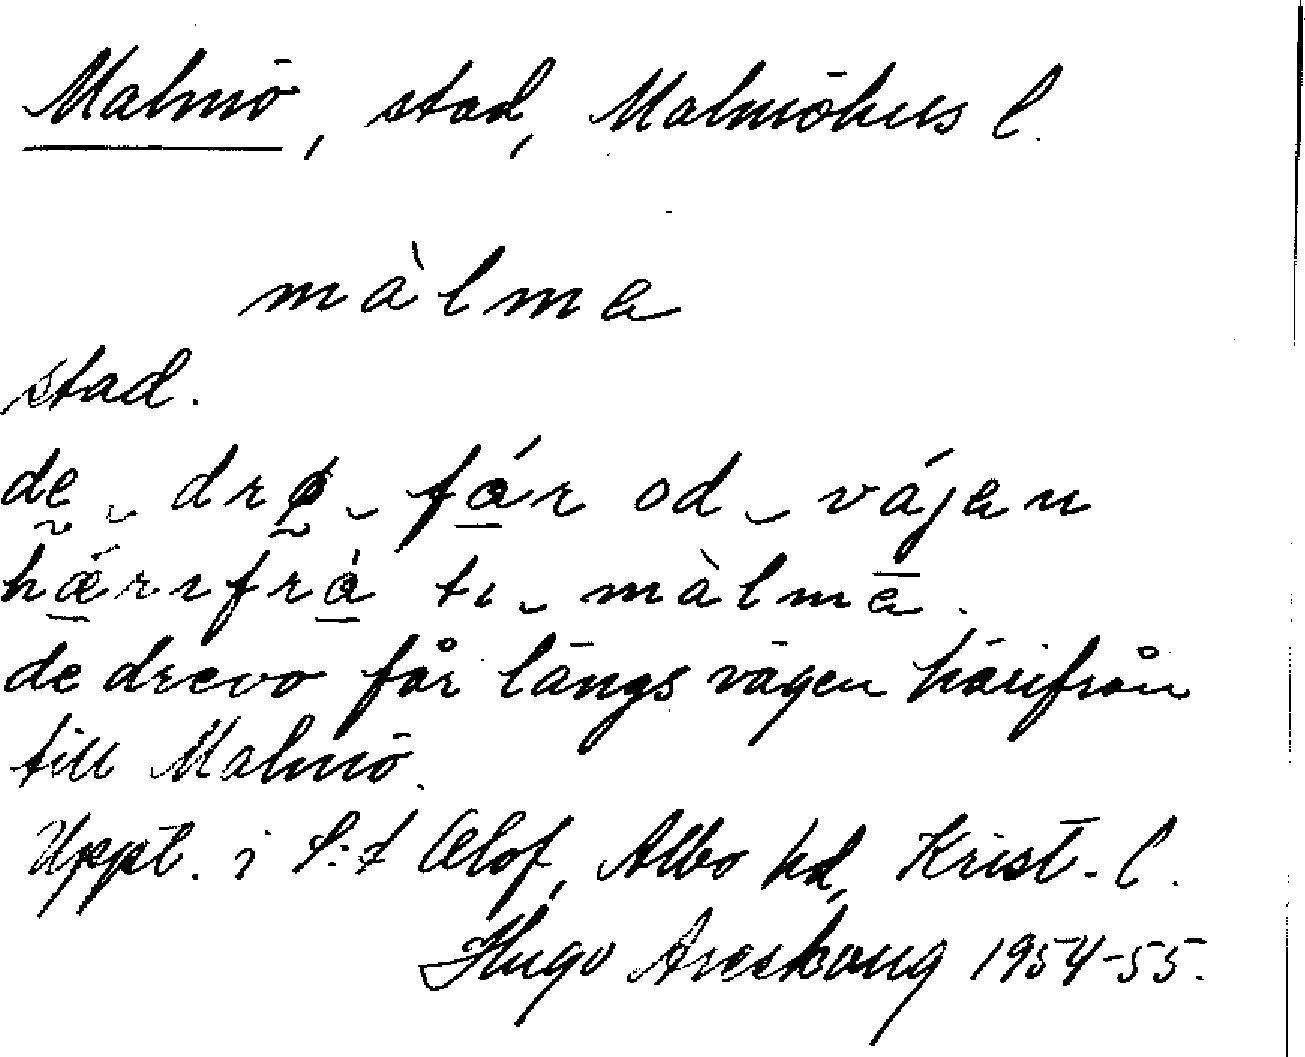 Malmö, stad, Malmöhus l.
màlmə
stad.
de drø fár od vájən
hǽrɪfrà tɪ màlmə.
de drevo får längs vägen härifrån
till Malmö.
Uppt. i S:t Olof, Albo hd, Krist. l.
Hugo Areskoug 1954-55.